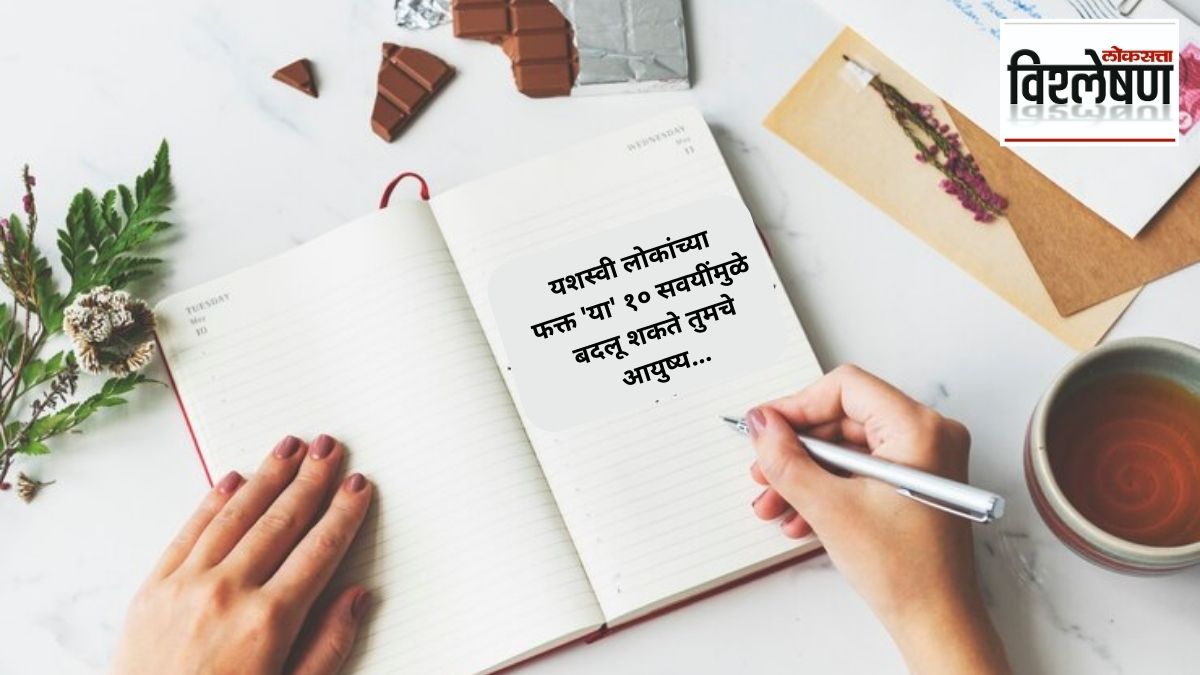 लोकसत्ता
विश्लेषण
WEDNESDAY
May
11
TUESDAY
May
10
यशस्वी लोकांच्या
फक्त 'या' १० सवयींमुळे
बदलू शकते तुमचे
आयुष्य...